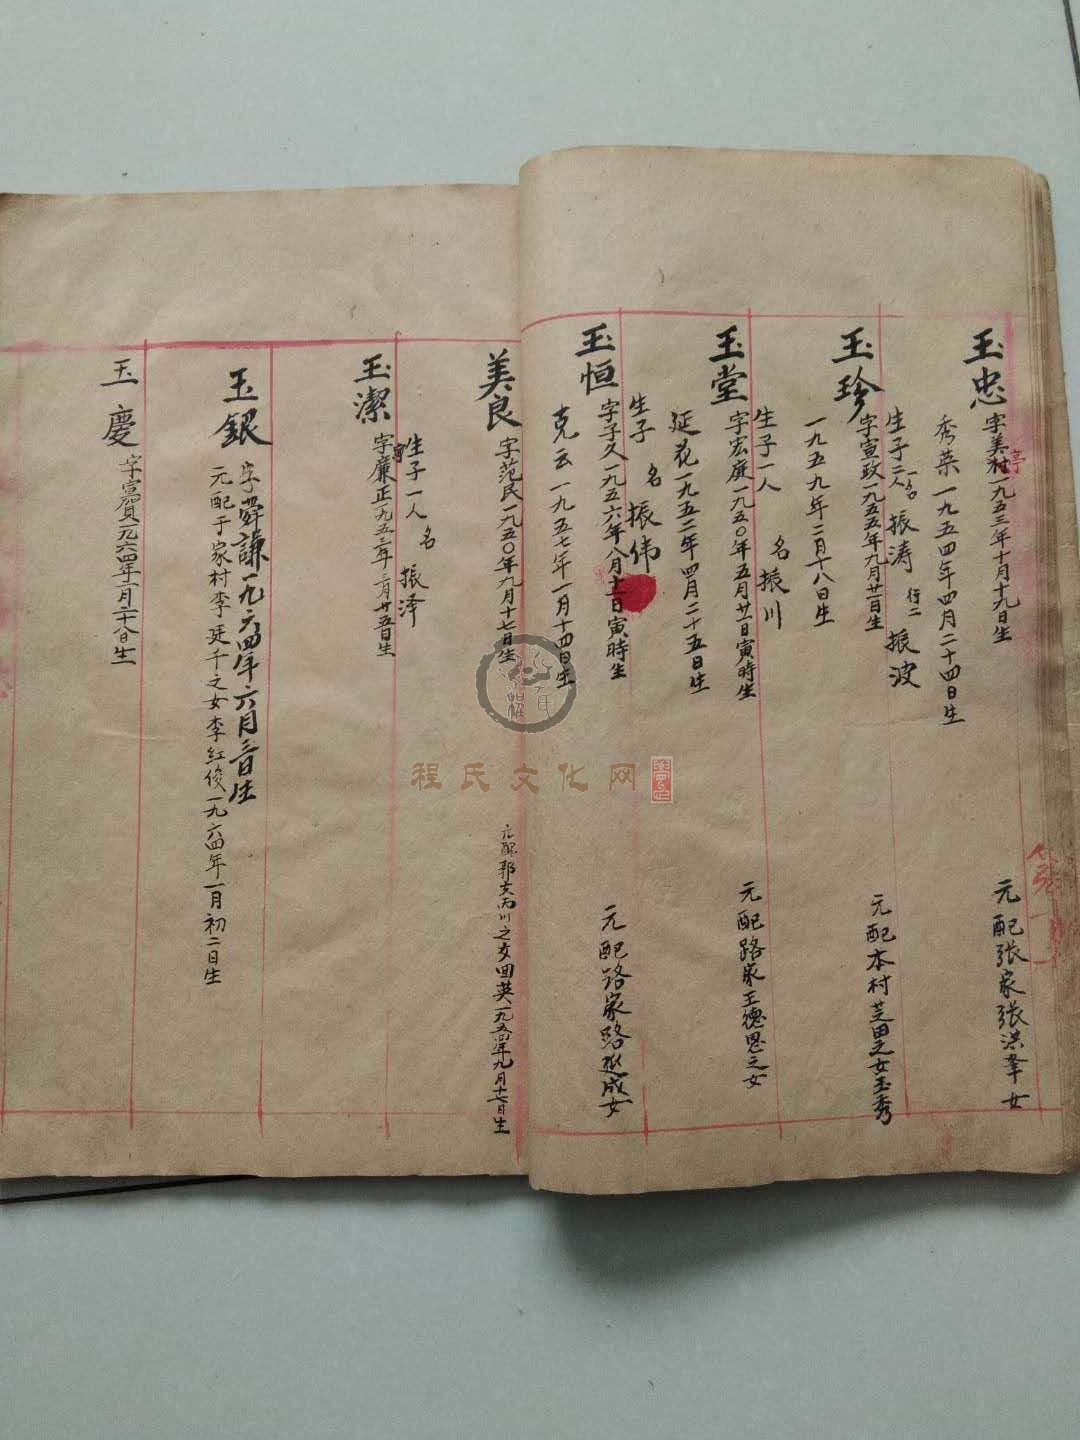 玉忠
字美村一九五三年十月十九日生
亭
秀菜一九五四年四月二十四日生
元配张家张洪奎女
生子二人 一名 振涛 行二 振波
玉珍
字宣政一九五五年九月廿一日生
一九五九年二月十八日生
元配本村芝田之女玉秀
生子一人 名振川
玉堂
字宏庭一九五〇年五月廿一日寅時生
延花一九五二年四月二十五日生
元配路家王德恩之女
生子 名 振伟
玉恒
字子久一九五六年八月十二日寅時生
克云一九五七年一月十四日生
元配路家路延成女
美良
字范民一九五〇年九月十七日生
元配郭文丙川之女田英一九五四年九月十七日生
生子一人 名 振泽
玉潔
字廉正一九五三年二月廿五日生
玉銀
字舜謙一九六四年六月三日生
元配于家村李廷千之女李红俊一九六四年一月初二日生
玉慶
字賓賀一九六四年一月二十八日生
程氏文化网